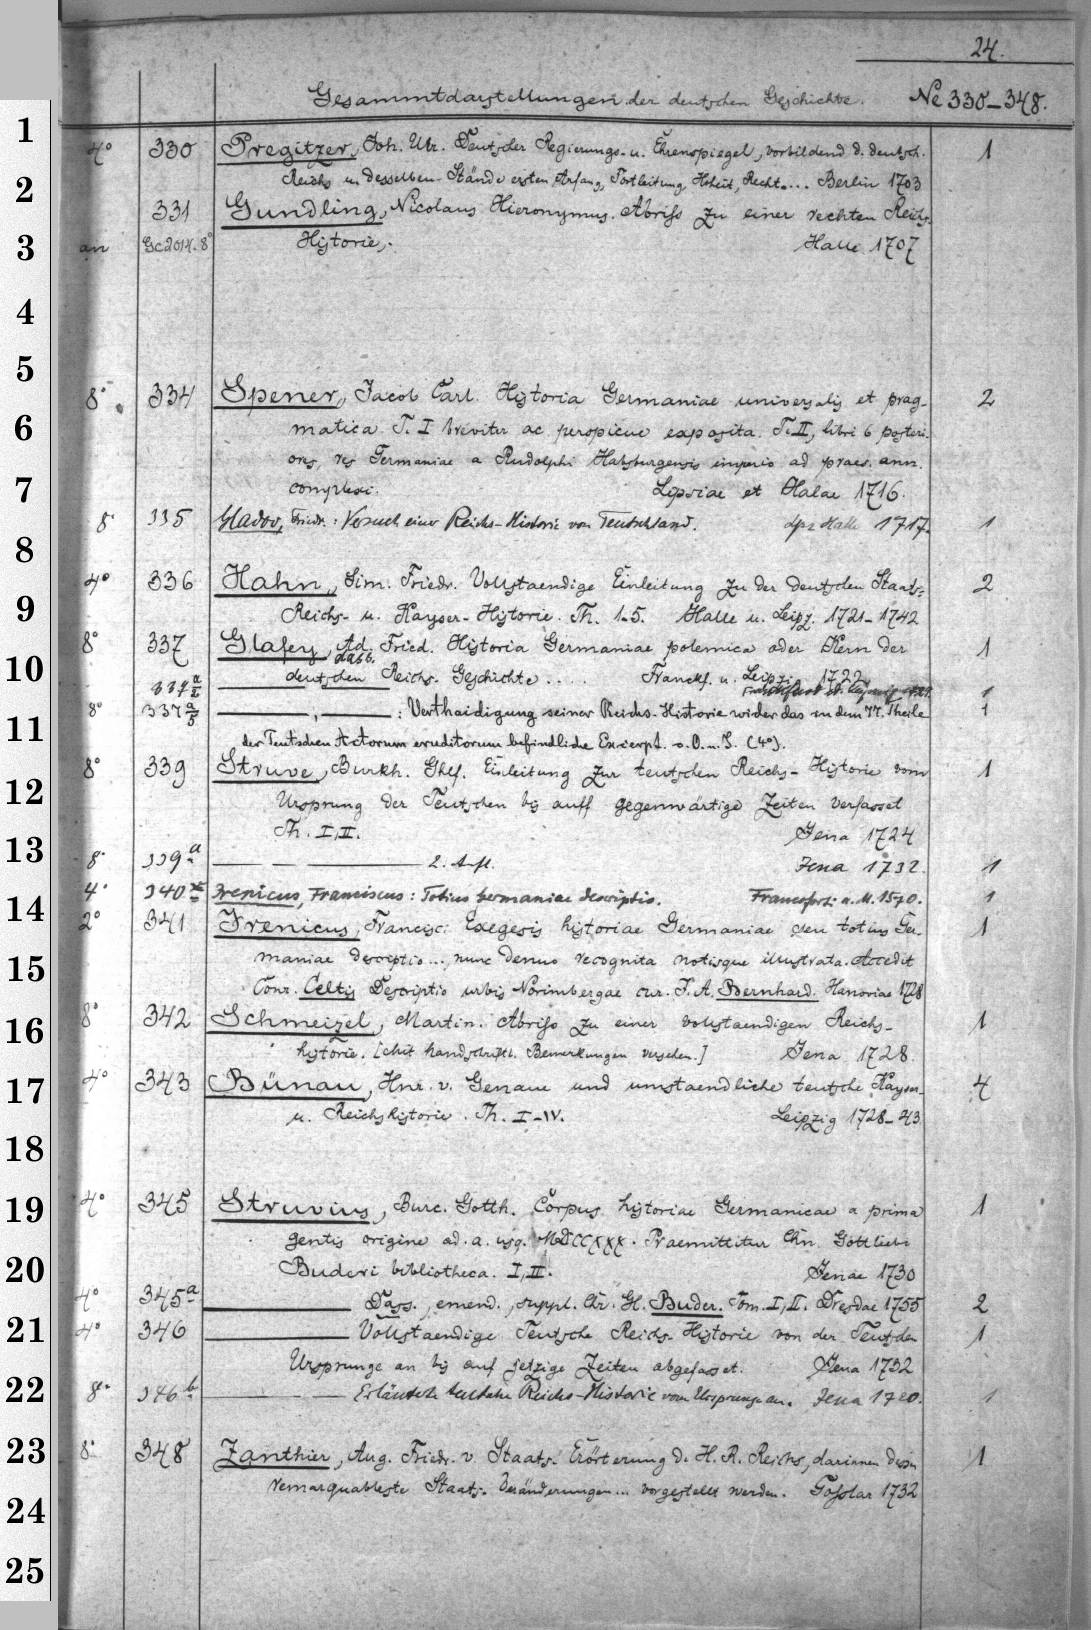 24.
Gesammtdarstellungen der deutschen Geschichte. No 330-348.
1
4° 330 Pregitzer, Joh. Ulr. Deutscher Regierungs- u. Ehrenspiegel, vorbildend d. deutsch. 1
2
Reichs u. desselben Stände ersten Anfang, Fortleitung, Hoheit, Recht.... Berlin 1703
331 Gundling, Nicolaus Hieronymus. Abriss zu einer rechten Reichs-
3
an Gc 2014. 8° Historie. Halle 1707
4
5
8° 334 Spener, Jacob Carl. Historia Germaniae universalis et prag- 2
6
matica T. I breviter ac perspicue exposita. T. II, libri 6 posteri-
ores, res Germaniae a Rudolphi Habsburgensis imperio ad praes. ann.
7
complexi. Lipsiae et Halae 1716.
8° 335 Gladov, Friedr.: Versuch einer Reichs-Historie von Teutschland. Lpz Halle 1717. 1
8
4° 336 Hahn, Sim. Friedr. Vollstaendige Einleitung zu der deutschen Staats- 2
9
Reichs- u. Kayser-Historie. Th. 1-5. Halle u. Leipz. 1721-1742
8° 337 Glafey, Ad. Fried. Historia Germaniae polemica oder Kern der 1
10
deutschen Reichs. Geschichte.... Franckf. u. Leipzig 1722
dass.
337 a/2 1
8° 337 a/5 ——, ——: Verthaidigung seiner Reichs-Historie wider das in dem 77. Theile 1
11
der Teutschen Actorum eruditorum befindliche Excerpt. o. O. u. J. (4°).
8° 339 Struve, Burkh. Ghlf. Einleitung zur teutschen Reichs-Historie vom 1
12
Ursprung der Teutschen bis auff gegenwärtige Zeiten verfasset
Th. I, II. Jena 1724
13
8° 339 a —— — —— 2. Aufl. Jena 1732. 1
4° 340 Irenicus, Franciscus: Totius Germaniae descriptio. Francofort. a. M. 1570. 1
14
2° 341 Irenicus, Francisc: Exegesis historiae Germaniae seu totius Ger- 1
maniae descriptio..., nunc denuo recognita notisque illustrata. Accedit
15
Conr. Celtis Descriptio urbis Norimbergae cur. J. A. Bernhard. Hanoviae 1728
8° 342 Schmeizel, Martin. Abriss zu einer vollstaendigen Reichs- 1
16
historie. [Mit handschriftl. Bemerkungen versehen.] Jena 1728.
4° 343 Bünau, Hnr. v. Genaue und umstaendliche teutsche Kayser- 4
17
u. Reichshistorie. Th. I-IV. Leipzig 1728-43.
18
4° 345 Struvius, Burc. Gotth. Corpus historiae Germanicae a prima 1
19
gentis origine ad. a. usq. MDCCXXX. Praemittitur Chn. Gottlieb
20
Buderi bibliotheca. I, II. Jenae 1730
4° 345 a —— Dass., emend., suppl. Chr. Gl. Buder. Tom. I, II. Dresdae 1755 2
21
4° 346 —— Vollstaendige Teutsche Reichs Historie von der Teutschen 1
Ursprunge an bis auf jetzige Zeiten abgefasset. Jena 1732
22
8° 346 b —— — — Erläuterte teutsche Reichs-Historie vom Ursprunge an. Jena 1720. 1
23
8° 348 Zanthier, Aug. Friedr. v. Staats-Erörterung d. H. R. Reichs, darinnen dessen 1
remarquableste Staats-Veränderungen... vorgestellt werden. Gosslar 1732
24
25